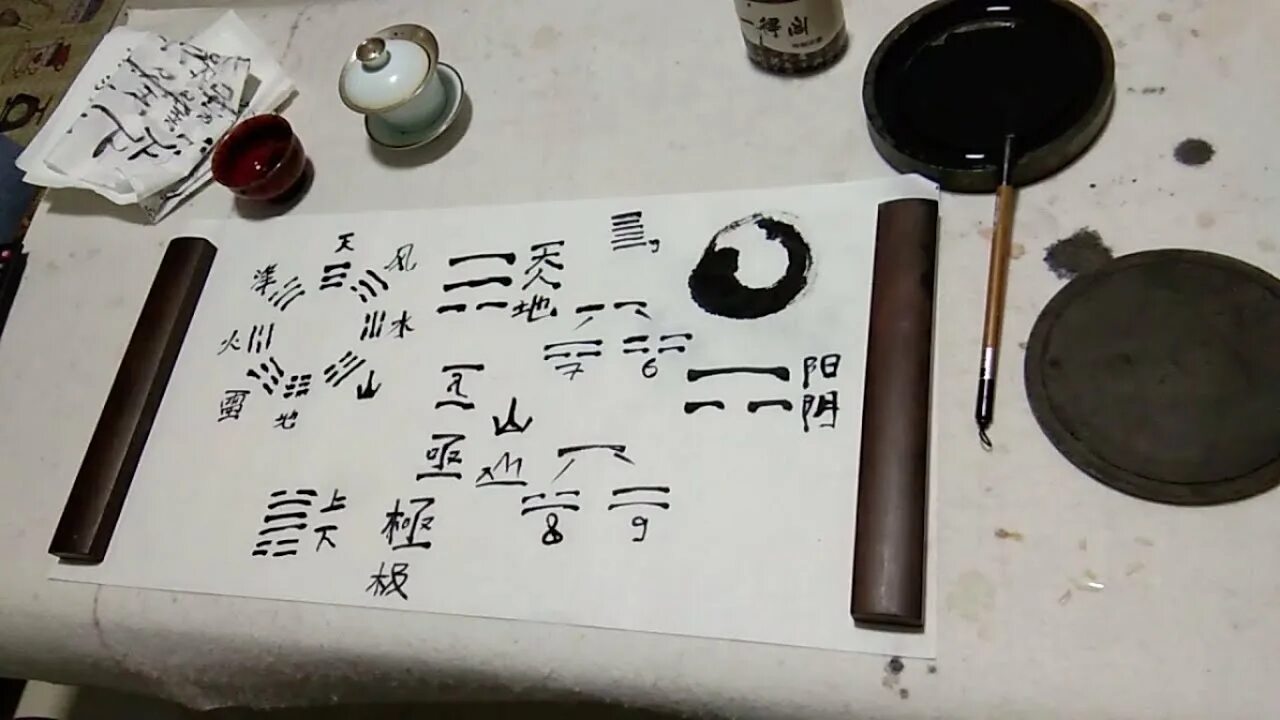 一得阁
天
风
泽
水
火
山
雷
地
天
人
地
9
7
6
阳
阴
山
8
9
上
下
亟
極
极